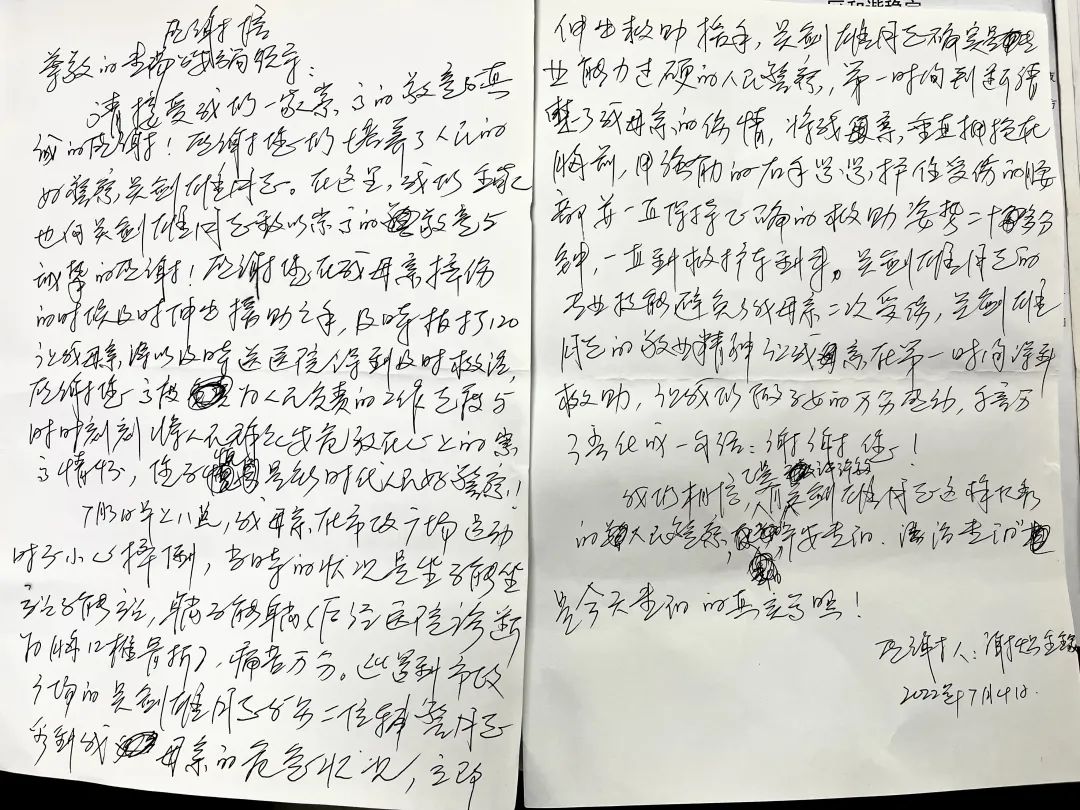 感谢信
尊敬的娄局领导:
请接受我们一家最崇高的敬意与真
诚的感谢!感谢您们培养了人民的
好警察,吴剑雄同志。在这里,我们全家
也向吴剑雄同志致以崇高的敬意与
诚挚的感谢!感谢您在我母亲摔伤
的时候及时伸出援助之手,及时拨打了120
让我母亲得以及时送医院得到及时救治,
感谢您高度为人民负责的工作态度与
时时刻刻将人民群众安危放在心上的崇
高情怀,您不愧是新时代人民好警察!
7月3日早上八点,我母亲在市政广场运动
时不小心摔倒,当时的状况是坐不能坐
立不能立,躺不能躺(后经医院诊断
为腰椎骨折),痛苦万分。巡逻到市政
广场的吴剑雄同志与另二位辅警同志
看到我母亲的危急状况,立即
伸出救助援手,吴剑雄同志确实是专
业能力过硬的人民警察,第一时间判断清
楚了我母亲的伤情,将我母亲垂直拥抱在
胸前,用强劲的右手紧紧护住受伤的腰
部并一直保持正确的救助姿势二十多分
钟,一直到救护车到来。吴剑雄同志的
专业技能避免了我母亲二次受伤,吴剑雄
同志的敬业精神让我母亲在第一时间得到
救助,让我们做子女的万分感动,千言万
语化成一句话:谢谢您!
我们相信,正是有许许多多吴剑雄同志这样优秀
的人民警察,平安娄
是今天娄的真实写照!
感谢人:谢
2022年7月4日.